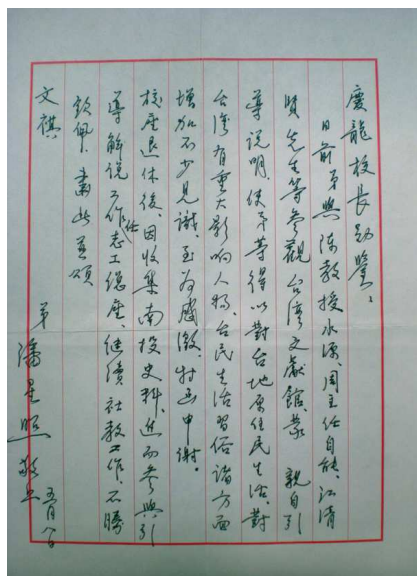 慶龍校長勛鑒：
日前弟與陳教授水源、周主任自能、江清
賢先生等參觀台灣文獻館、蒙　親自引
導說明、使弟等得以對台地原住民生活、對
台灣有重大影响人物、台民生活習俗諸方面
增加不少見識、至為感激、特函申謝。
校座退休後、因收集南投史料、進而參與引
導解說工作任志工總座、繼續社教工作、不勝
欽佩、肅此並頌
文祺
弟 潘星照敬上